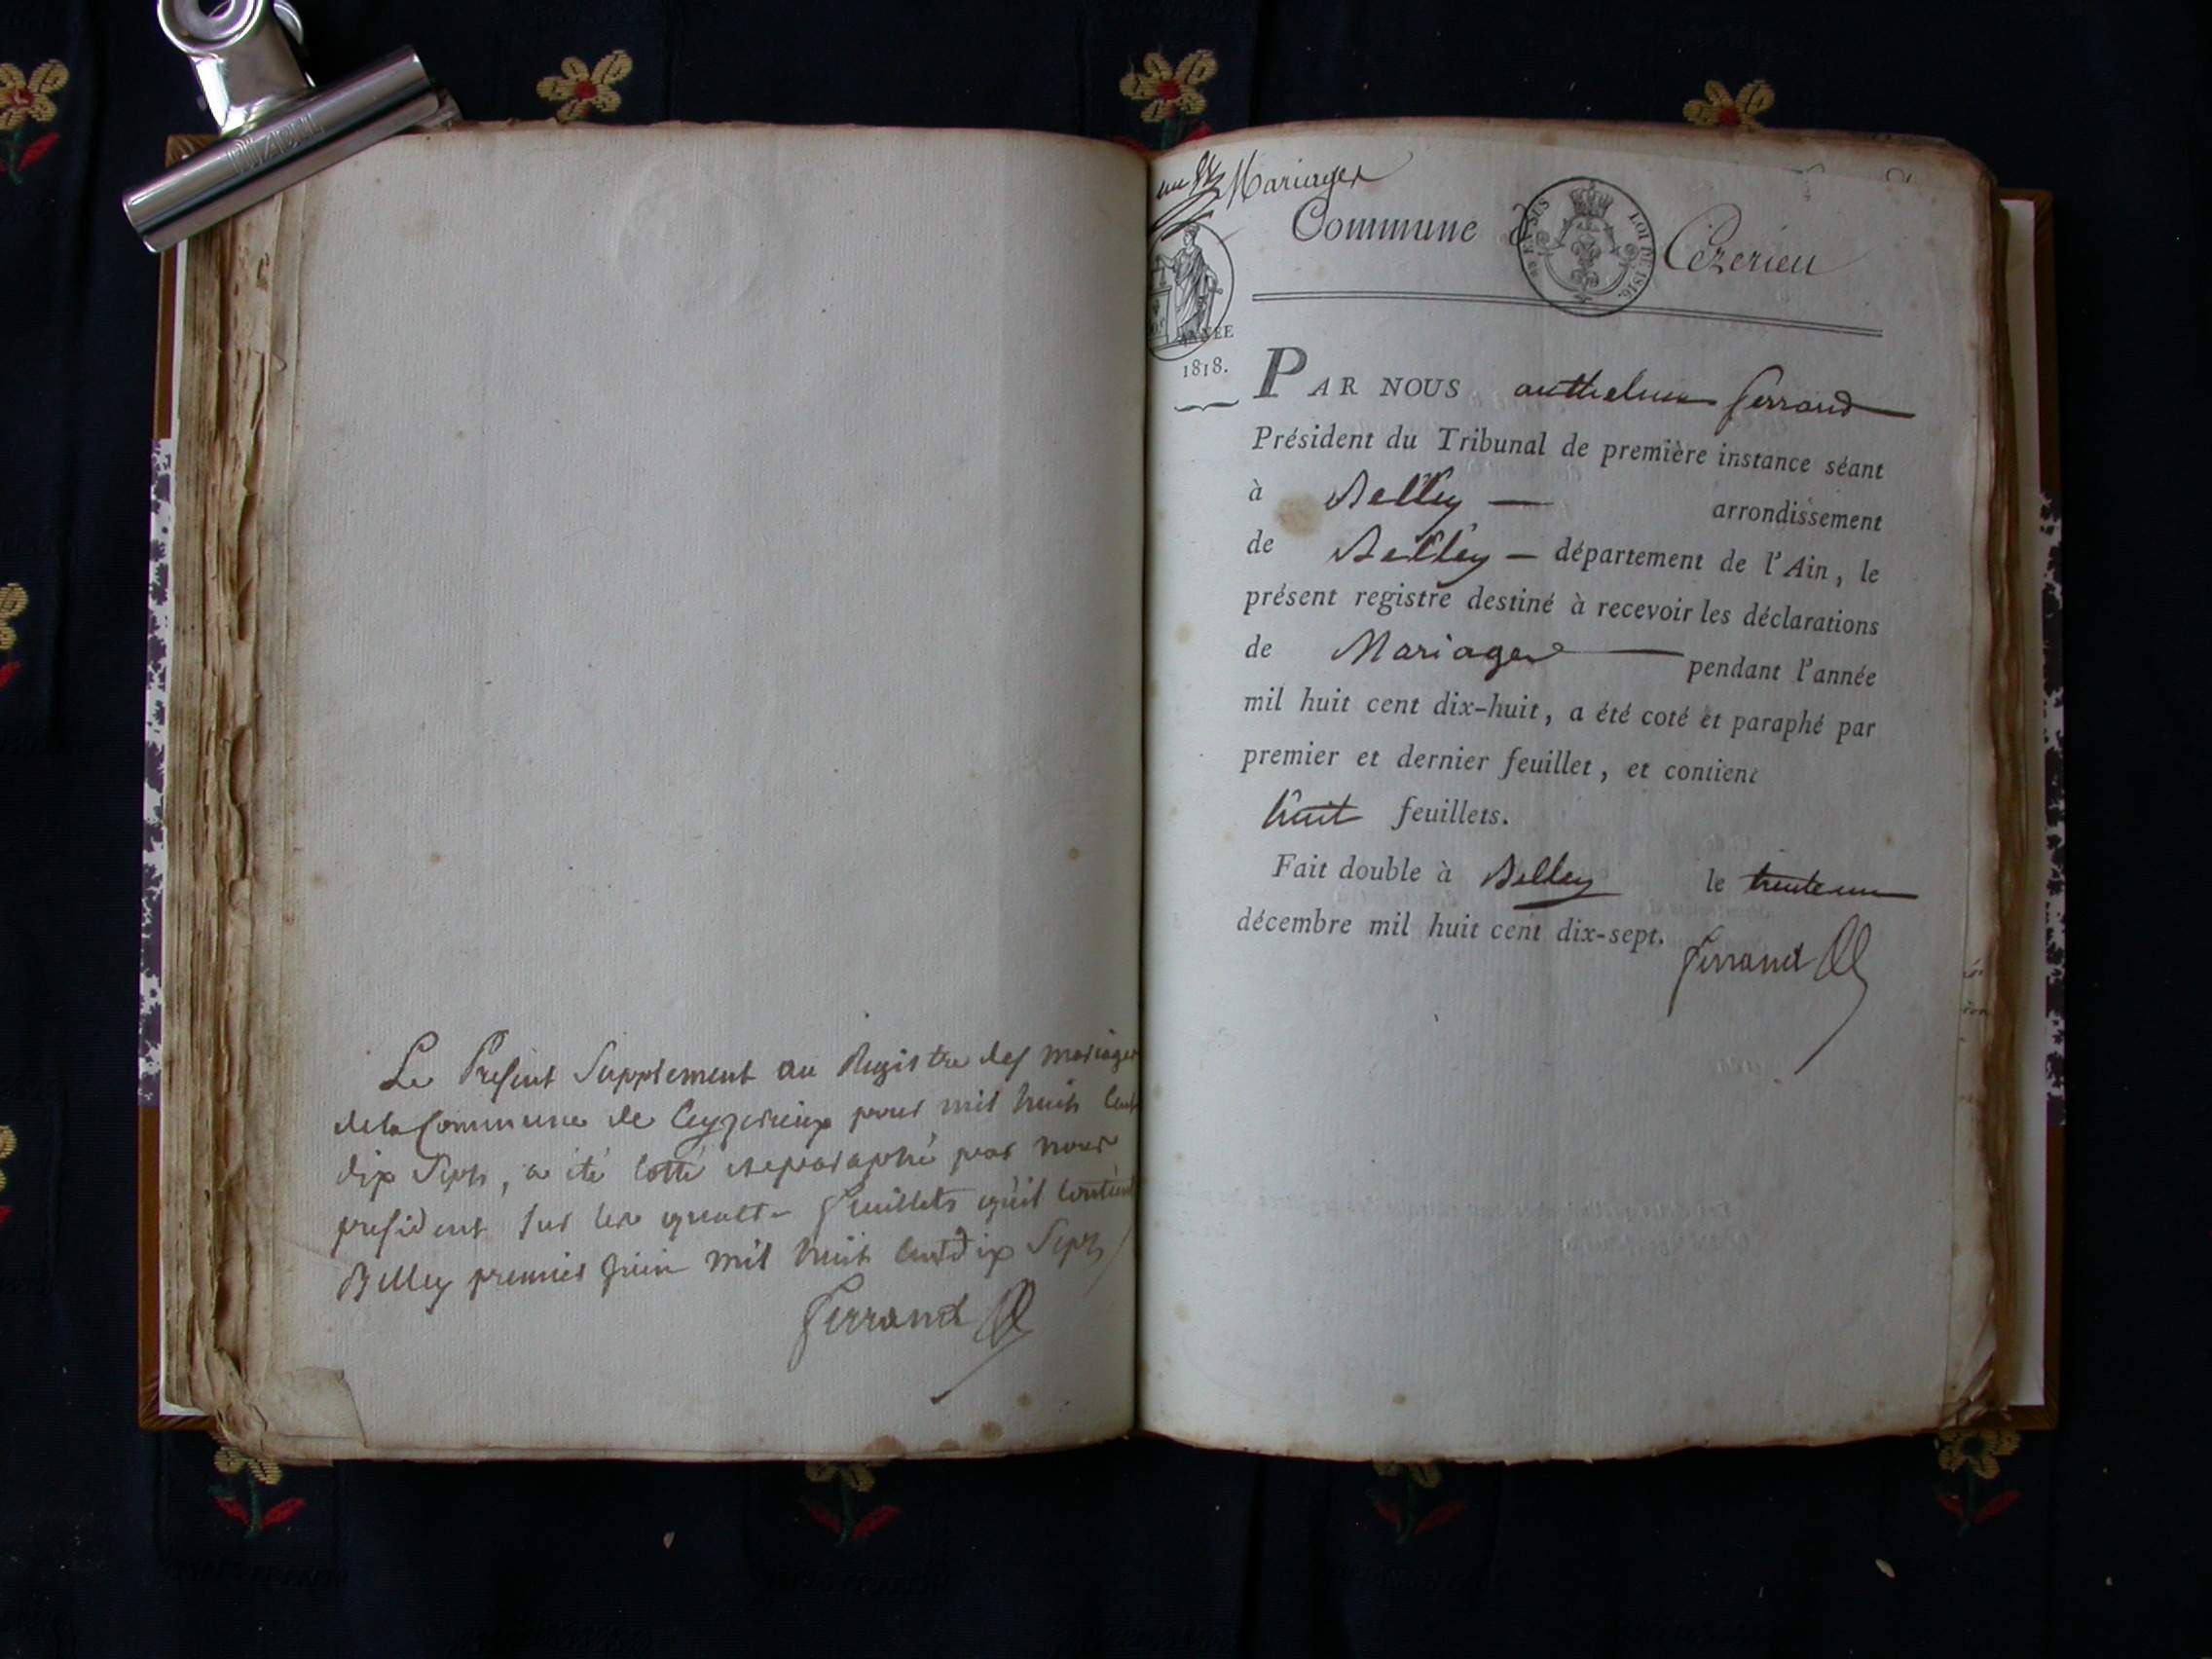 Le Present Supplement au Registre des mariages
de la Commune de Ceyzerieux pour mil huit cent
dix Sept, a été Cotté et paraphé par nous
president sur les quatre feuillets qu'il Contient
Belley premier Juin mil huit Cent dix Sept
Ferrand
Mariages
Commune de Cézerieu
EN SUS LOI DE 1816.
ANNÉE
1818.
PAR NOUS anthelme ferrand
Président du Tribunal de première instance séant
à Belley — arrondissement
de Belley — département de l'Ain, le
présent registre destiné à recevoir les déclarations
de Mariages — pendant l'année
mil huit cent dix-huit, a été coté et paraphé par
premier et dernier feuillet, et contient
huit feuillets.
Fait double à Belley le trente un
décembre mil huit cent dix-sept.
ferrand